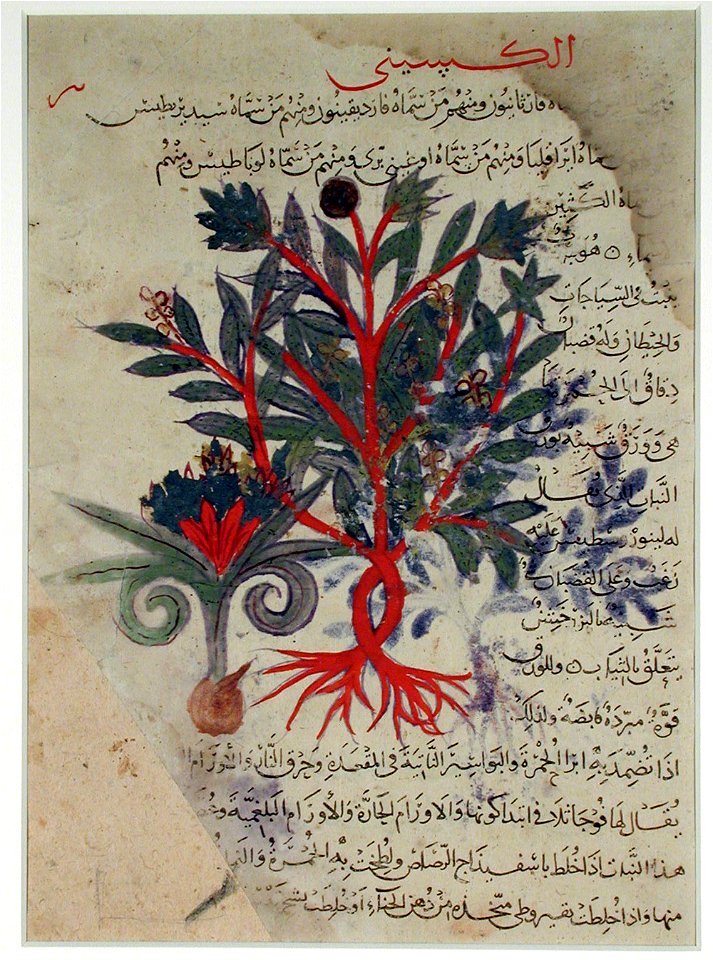 الكسيني
فارثانيون ومنهم من سماه فارديقينون ومنهم من سماه سيديريطيس
ابراقليا ومنهم من سماه اوغيني بري ومنهم من سماه لوباطيس ومنهم
هو
ينبت في السياجات
والحيطان وله قضبان
دقاق الى الحمرة ما
هي وورق شبيه بورق
النبات الذي يقال
له لينوزسطيس عليه
زغب وعلى القضبان
شبيه بالبزر خشن
يتعلق بالثياب ه وللورق
قوة مبردة قابضة ولذلك
اذا تضمد به ابرا الحمرة والبواسير النابتة في المقعدة وحرق النار والاورام
يقال لها فوجاثلا في ابتدا كونها والاورام الحارة والاورام البلغمية
هذا النبات اذا خلط باسفيذاج الرصاص ولطخت به الحمرة
منها واذا خلطت بقيروطي متخذة من دهن الحناء او خلطت بشحم